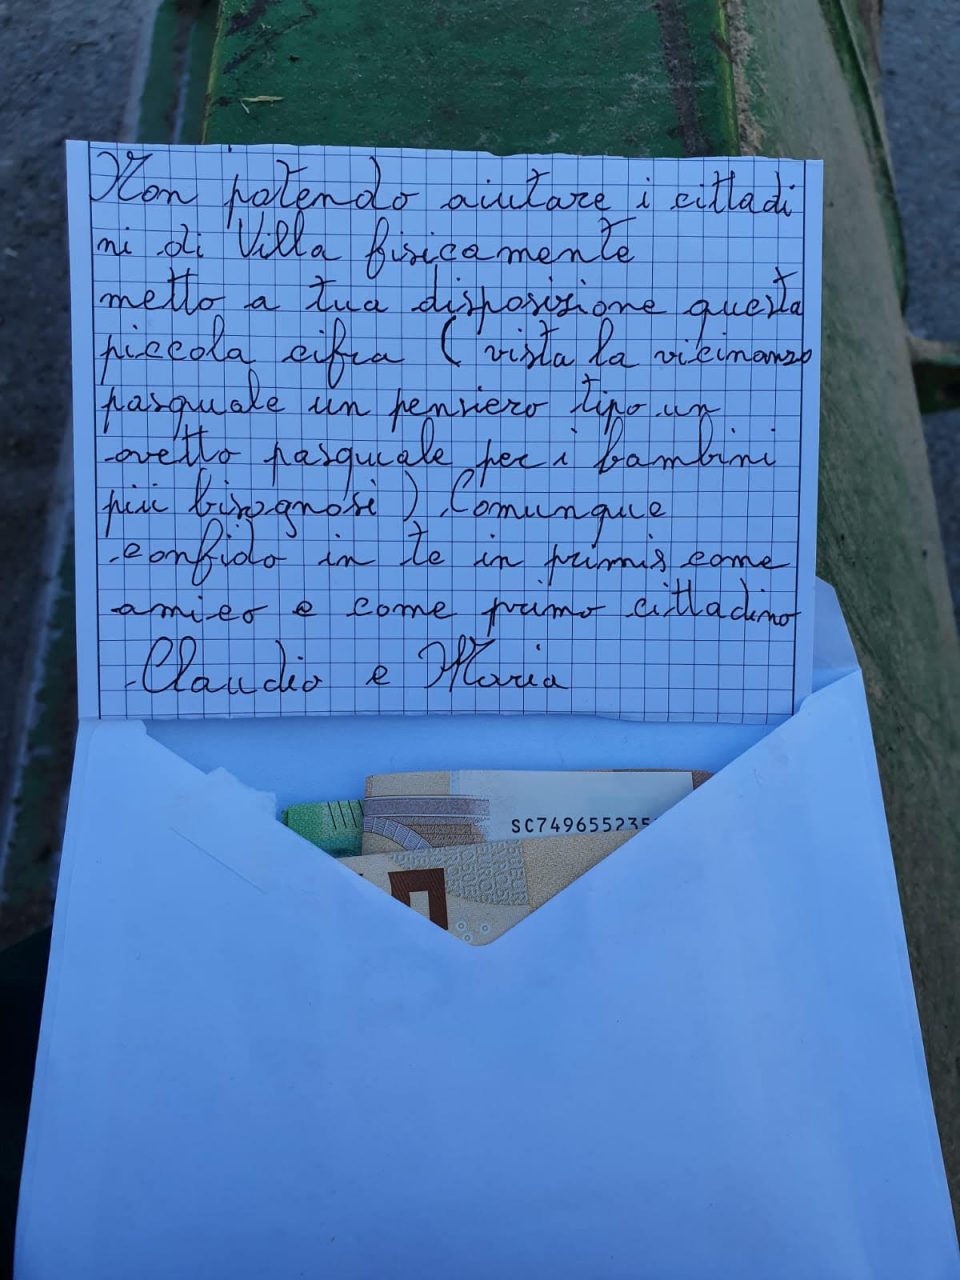 Non potendo aiutare i cittadi
ni di Villa fisicamente
metto a tua disposizione questa
piccola cifra ( vista la vicinanza
pasquale un pensiero tipo un
ovetto pasquale per i bambini
più bisognosi ) Comunque
confido in te in primis come
amico e come primo cittadino
Claudio e Maria
SC74965523